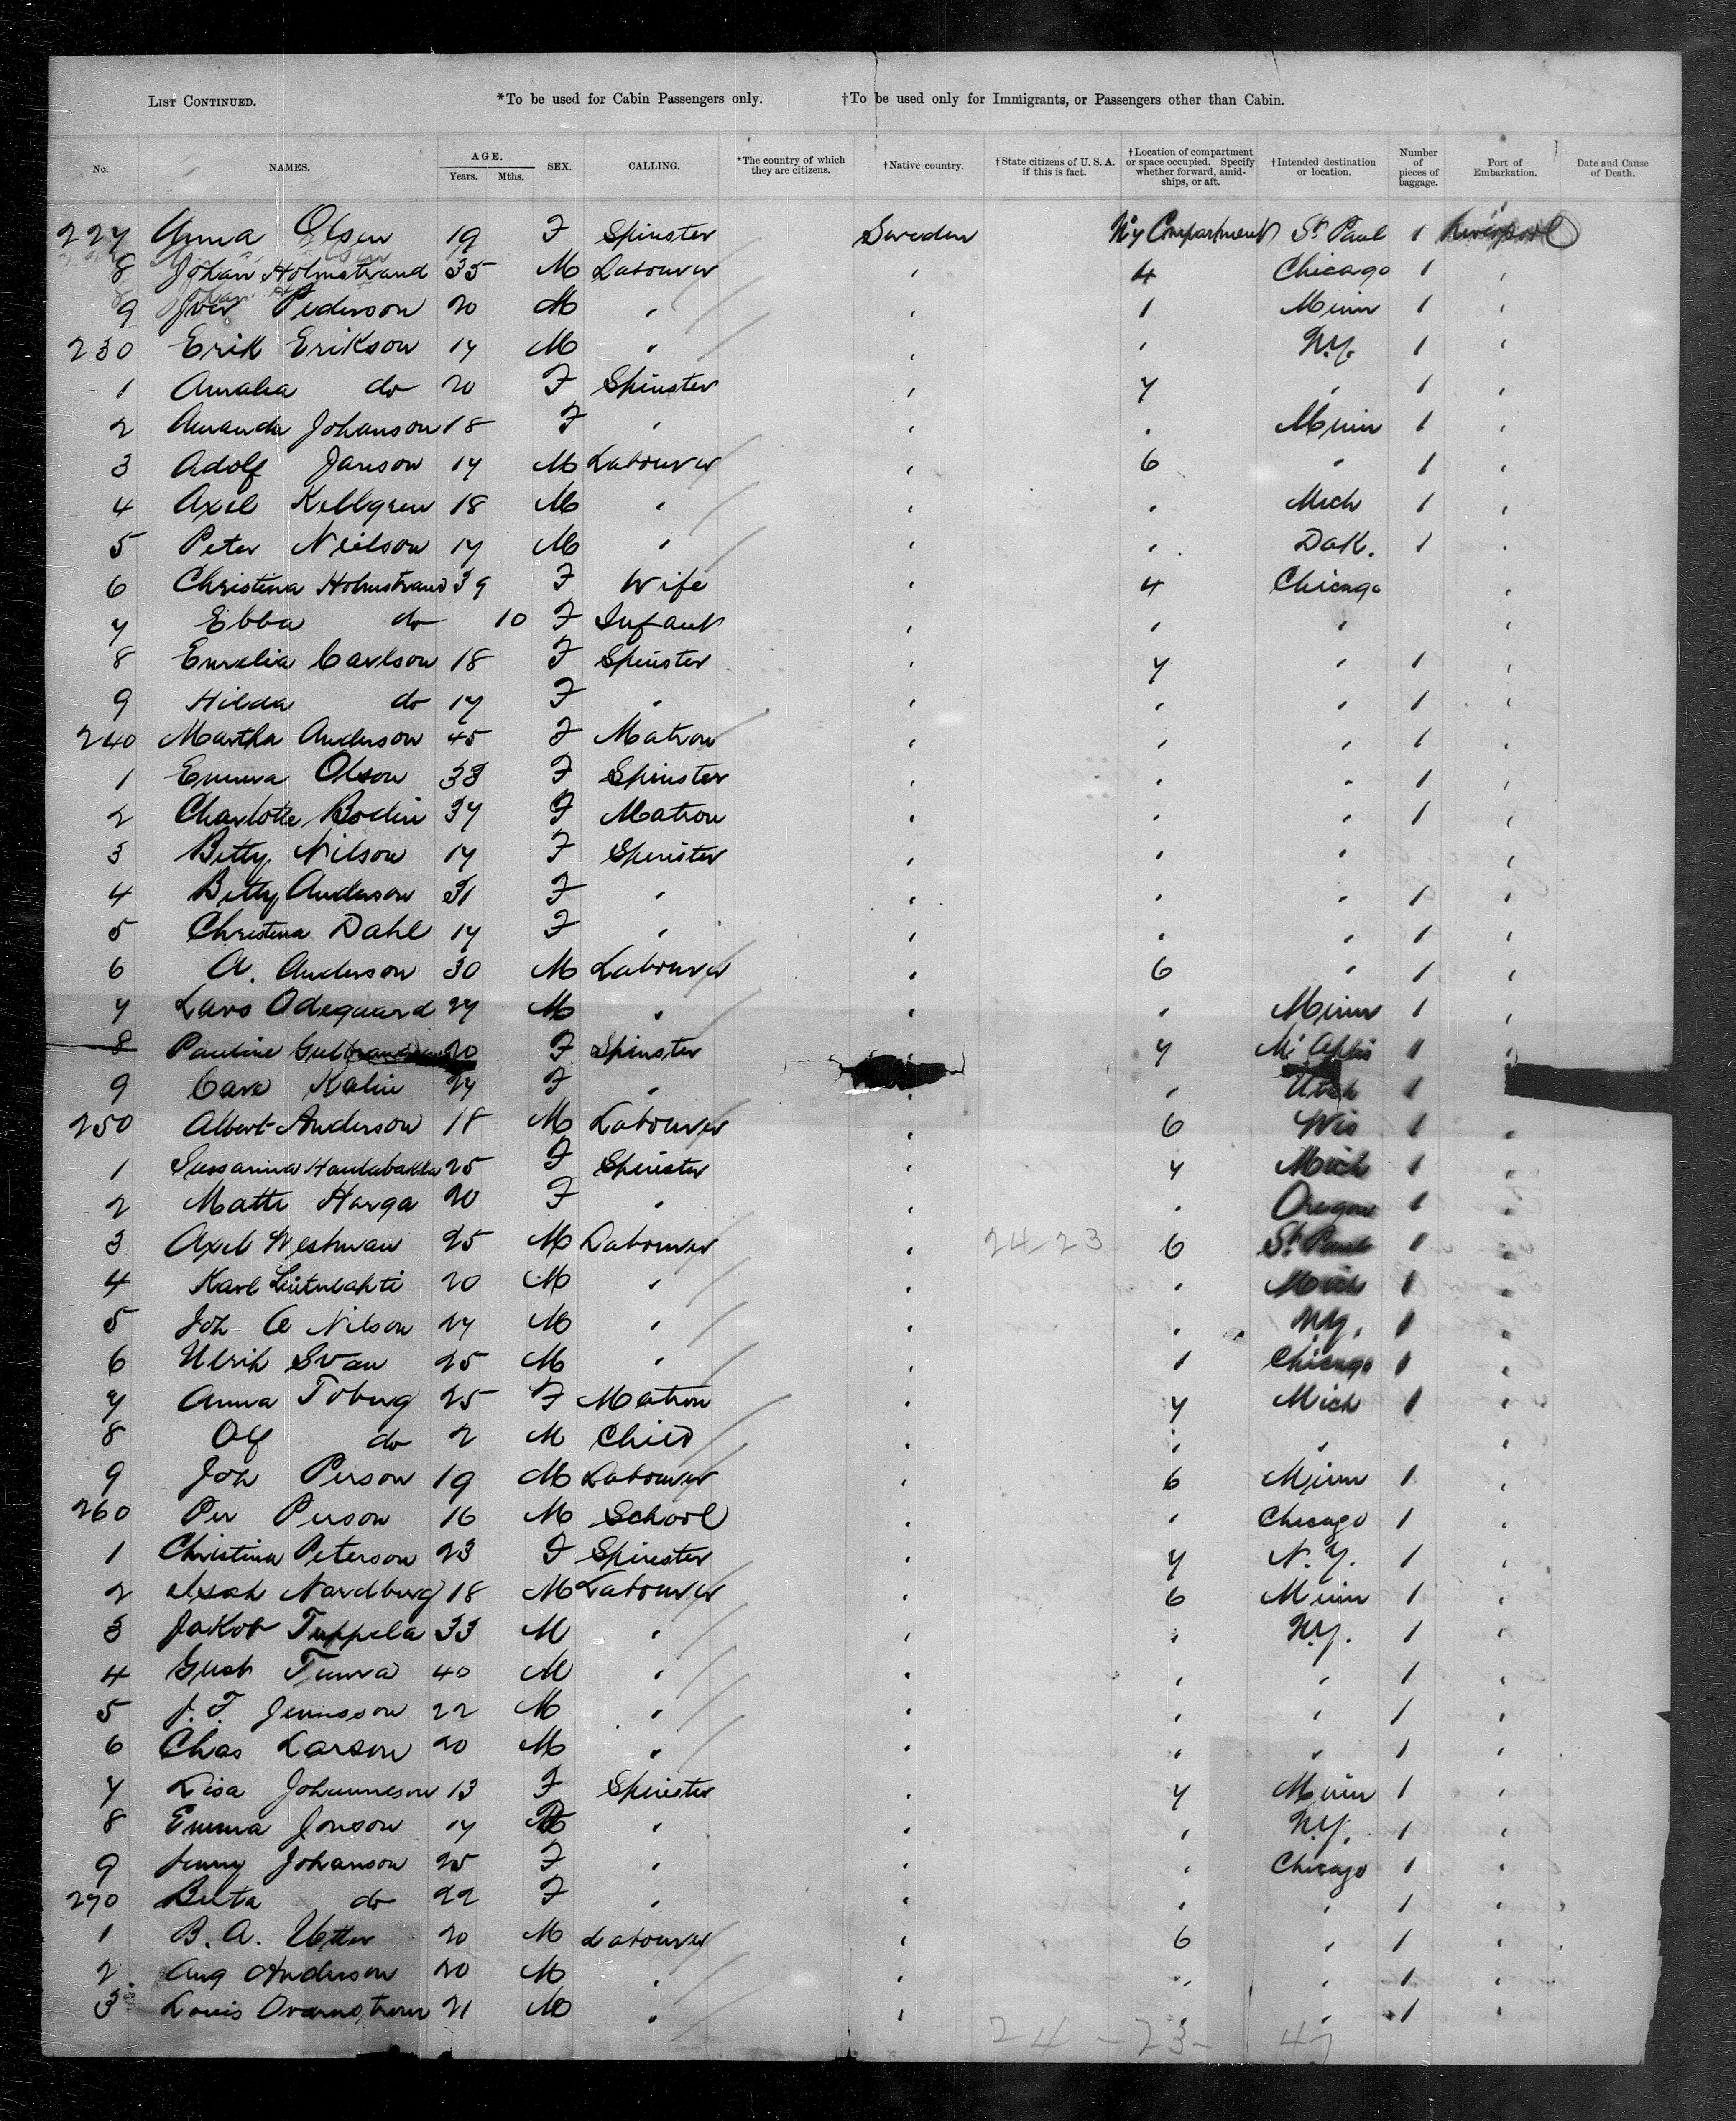 List Continued. *To be used for Cabin Passengers only. †To be used only for Immigrants, or Passengers other than Cabin.
No. NAMES. AGE. Years. Mths. SEX. CALLING. *The country of which they are citizens. †Native country. †State citizens of U. S. A. if this is fact. †Location of compartment or space occupied. Specify whether forward, amidships, or aft. †Intended destination or location. Number of pieces of baggage. Port of Embarkation. Date and Cause of Death.
227 Anna Olsen 19 F Spinster Sweden No 7 Compartment St. Paul 1 Liverpool
8 Johan Holmstrand 35 M Labourer " 4 Chicago 1 "
9 Iver Pederson 20 M " " 1 Minn 1 "
230 Erik Erikson 17 M " " " N.Y. 1 "
1 Amalia do 20 F Spinster " 7 " 1 "
2 Amanda Johanson 18 F " " " Minn 1 "
3 Adolf Janson 17 M Labourer " 6 " 1 "
4 Axel Kellgren 18 M " " " Mich 1 "
5 Peter Neilson 17 M " " " Dak. 1 "
6 Christina Holmstrand 39 F Wife " 4 Chicago "
7 Ebba do 10 F Infant " " " "
8 Emelia Carlson 18 F Spinster " 7 " 1 "
9 Hilda do 17 F " " " " 1 "
240 Martha Anderson 45 F Matron " " " 1 "
1 Emma Olson 33 F Spinster " " " 1 "
2 Charlotte Bodin 37 F Matron " " " 1 "
3 Betty Nilson 17 F Spinster " " " "
4 Betty Anderson 31 F " " " " 1 "
5 Christina Dahl 17 F " " " " 1 "
6 A. Anderson 30 M Labourer " 6 " 1 "
7 Lars Odeguard 27 M " " " Minn 1 "
8 Pauline 20 F Spinster 7 1 "
9 Cara Kalin 27 F " " " Utah 1
250 Albert Anderson 18 M Labourer " 6 Wis 1 "
1 Sussanna 25 F Spinster " 7 Mich 1 "
2 Matte Harga 20 F " " " Oregon 1 "
3 Axel Westman 25 M Labourer " 24-23 6 St. Paul 1 "
4 Karl 20 M " " " Mich 1 "
5 Joh A Nilson 27 M " " " N.Y. 1 "
6 Ulrik Svan 25 M " " 1 Chicago 1 "
7 Anna Toberg 25 F Matron " 7 Mich 1 "
8 Olf do 2 M Child " " " "
9 Joh Person 19 M Labourer " 6 Minn 1 "
260 Per Person 16 M School " " Chicago 1 "
1 Christina Peterson 23 F Spinster " 7 N.Y. 1 "
2 Isak Nordberg 18 M Labourer " 6 Minn 1 "
3 Jakob Tuppela 33 M " " " N.Y. 1 "
4 Gust 40 M " " " " 1 "
5 J. F. 22 M " " " " 1 "
6 Chas Larson 20 M " " " " 1 "
7 Lisa Johanneson 13 F Spinster " 7 Minn 1 "
8 Emma Jonson 17 " " " N.Y. 1 "
9 Jenny Johanson 25 F " " " Chicago 1 "
270 Beta do 22 F " " " " 1 "
1 B. A. 20 M Labourer " 6 " 1 "
2 Aug Anderson 20 M " " " " 1 "
3 Louis 21 M " " " " 1 "
24 - 23 - 47